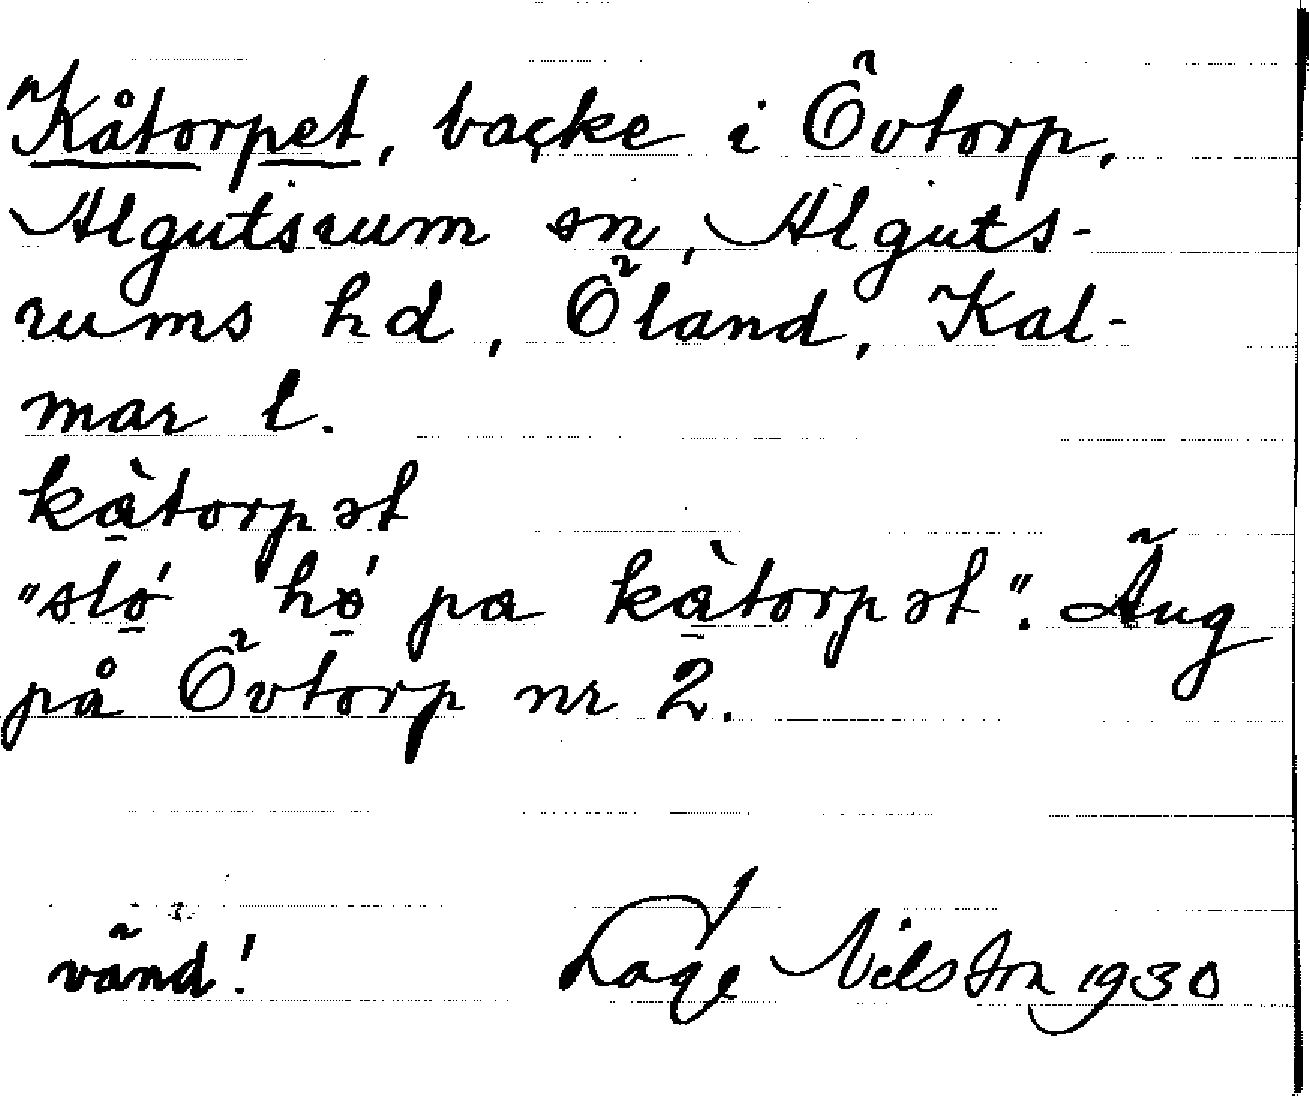 Kåtorpet, backe i Övtorp,
Algutsrum sn, Alguts-
rums hd, Öland, Kal-
mar l.
kàtorpət
"sló hó pa kàtorpət". Äug
på Övtorp nr 2.
vänd! Lage Nilsson 1930